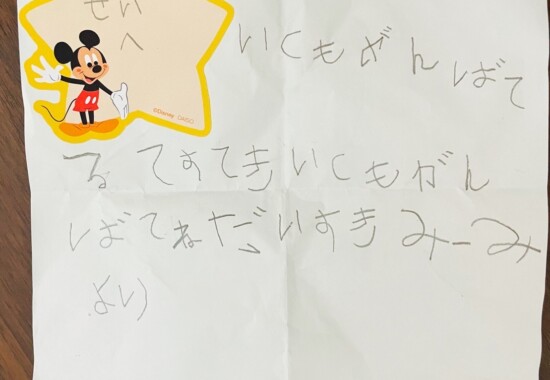 せい
へ
©Disney DAISO
いくもがんばて
る てすてきいくもがん
ばてねだいすきみーみ
より